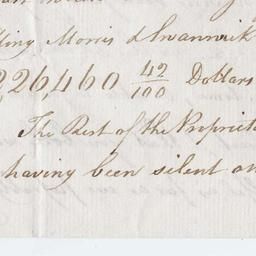 lling Morris & Swanwick
2,26,460 42/100 Dollars
The Rest of the Propriet
having been silent on